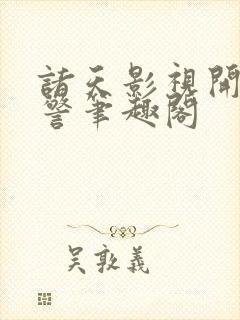 諸天影視開
警筆趣閣
吳敦義